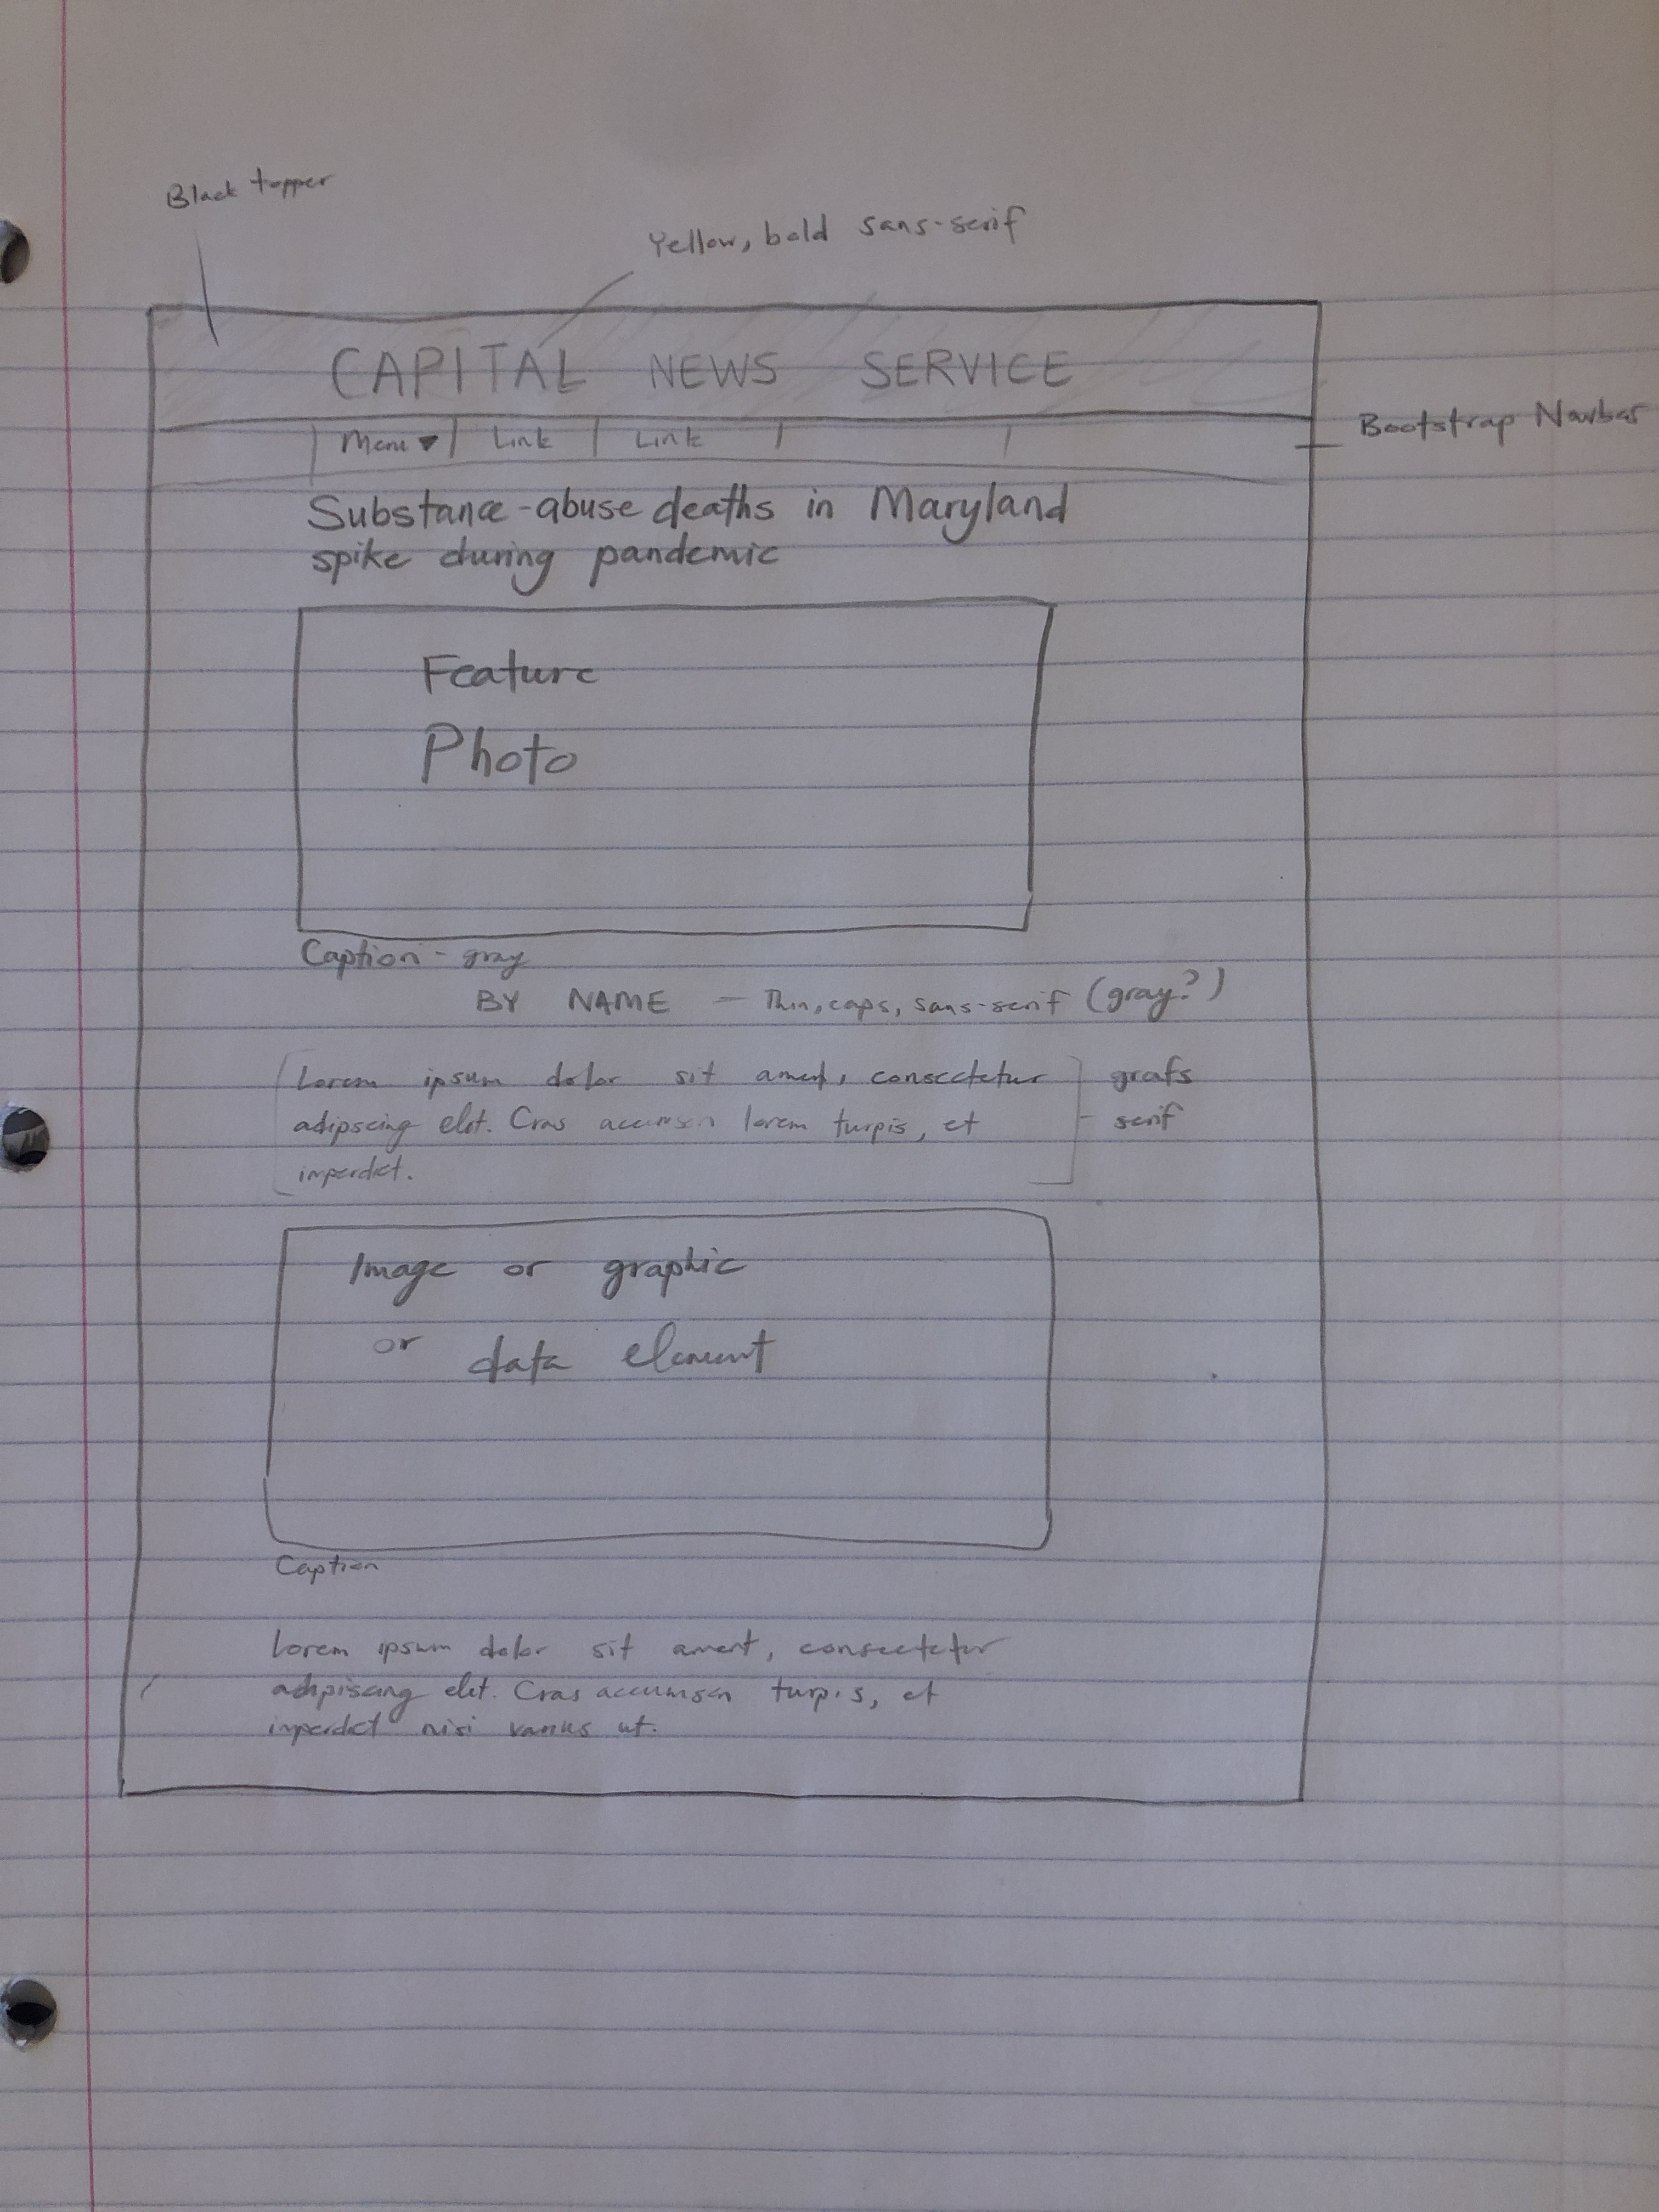 Black topper
Yellow, bold sans-serif
CAPITAL NEWS SERVICE
Bootstrap Navbar
Menu ▼ Link Link
Substance-abuse deaths in Maryland
spike during pandemic
Feature
Photo
Caption - gray
BY NAME — Thin, caps, sans-serif (gray?)
Lorem ipsum dolor sit amet, consectetur
adipscing elit. Cras accumsan lorem turpis, et
imperdiet.
grafs
serif
Image or graphic
or data element
Caption
Lorem ipsum dolor sit ament, consectetur
adipiscing elit. Cras accumsan turpis, et
imperdiet nisi varius ut.